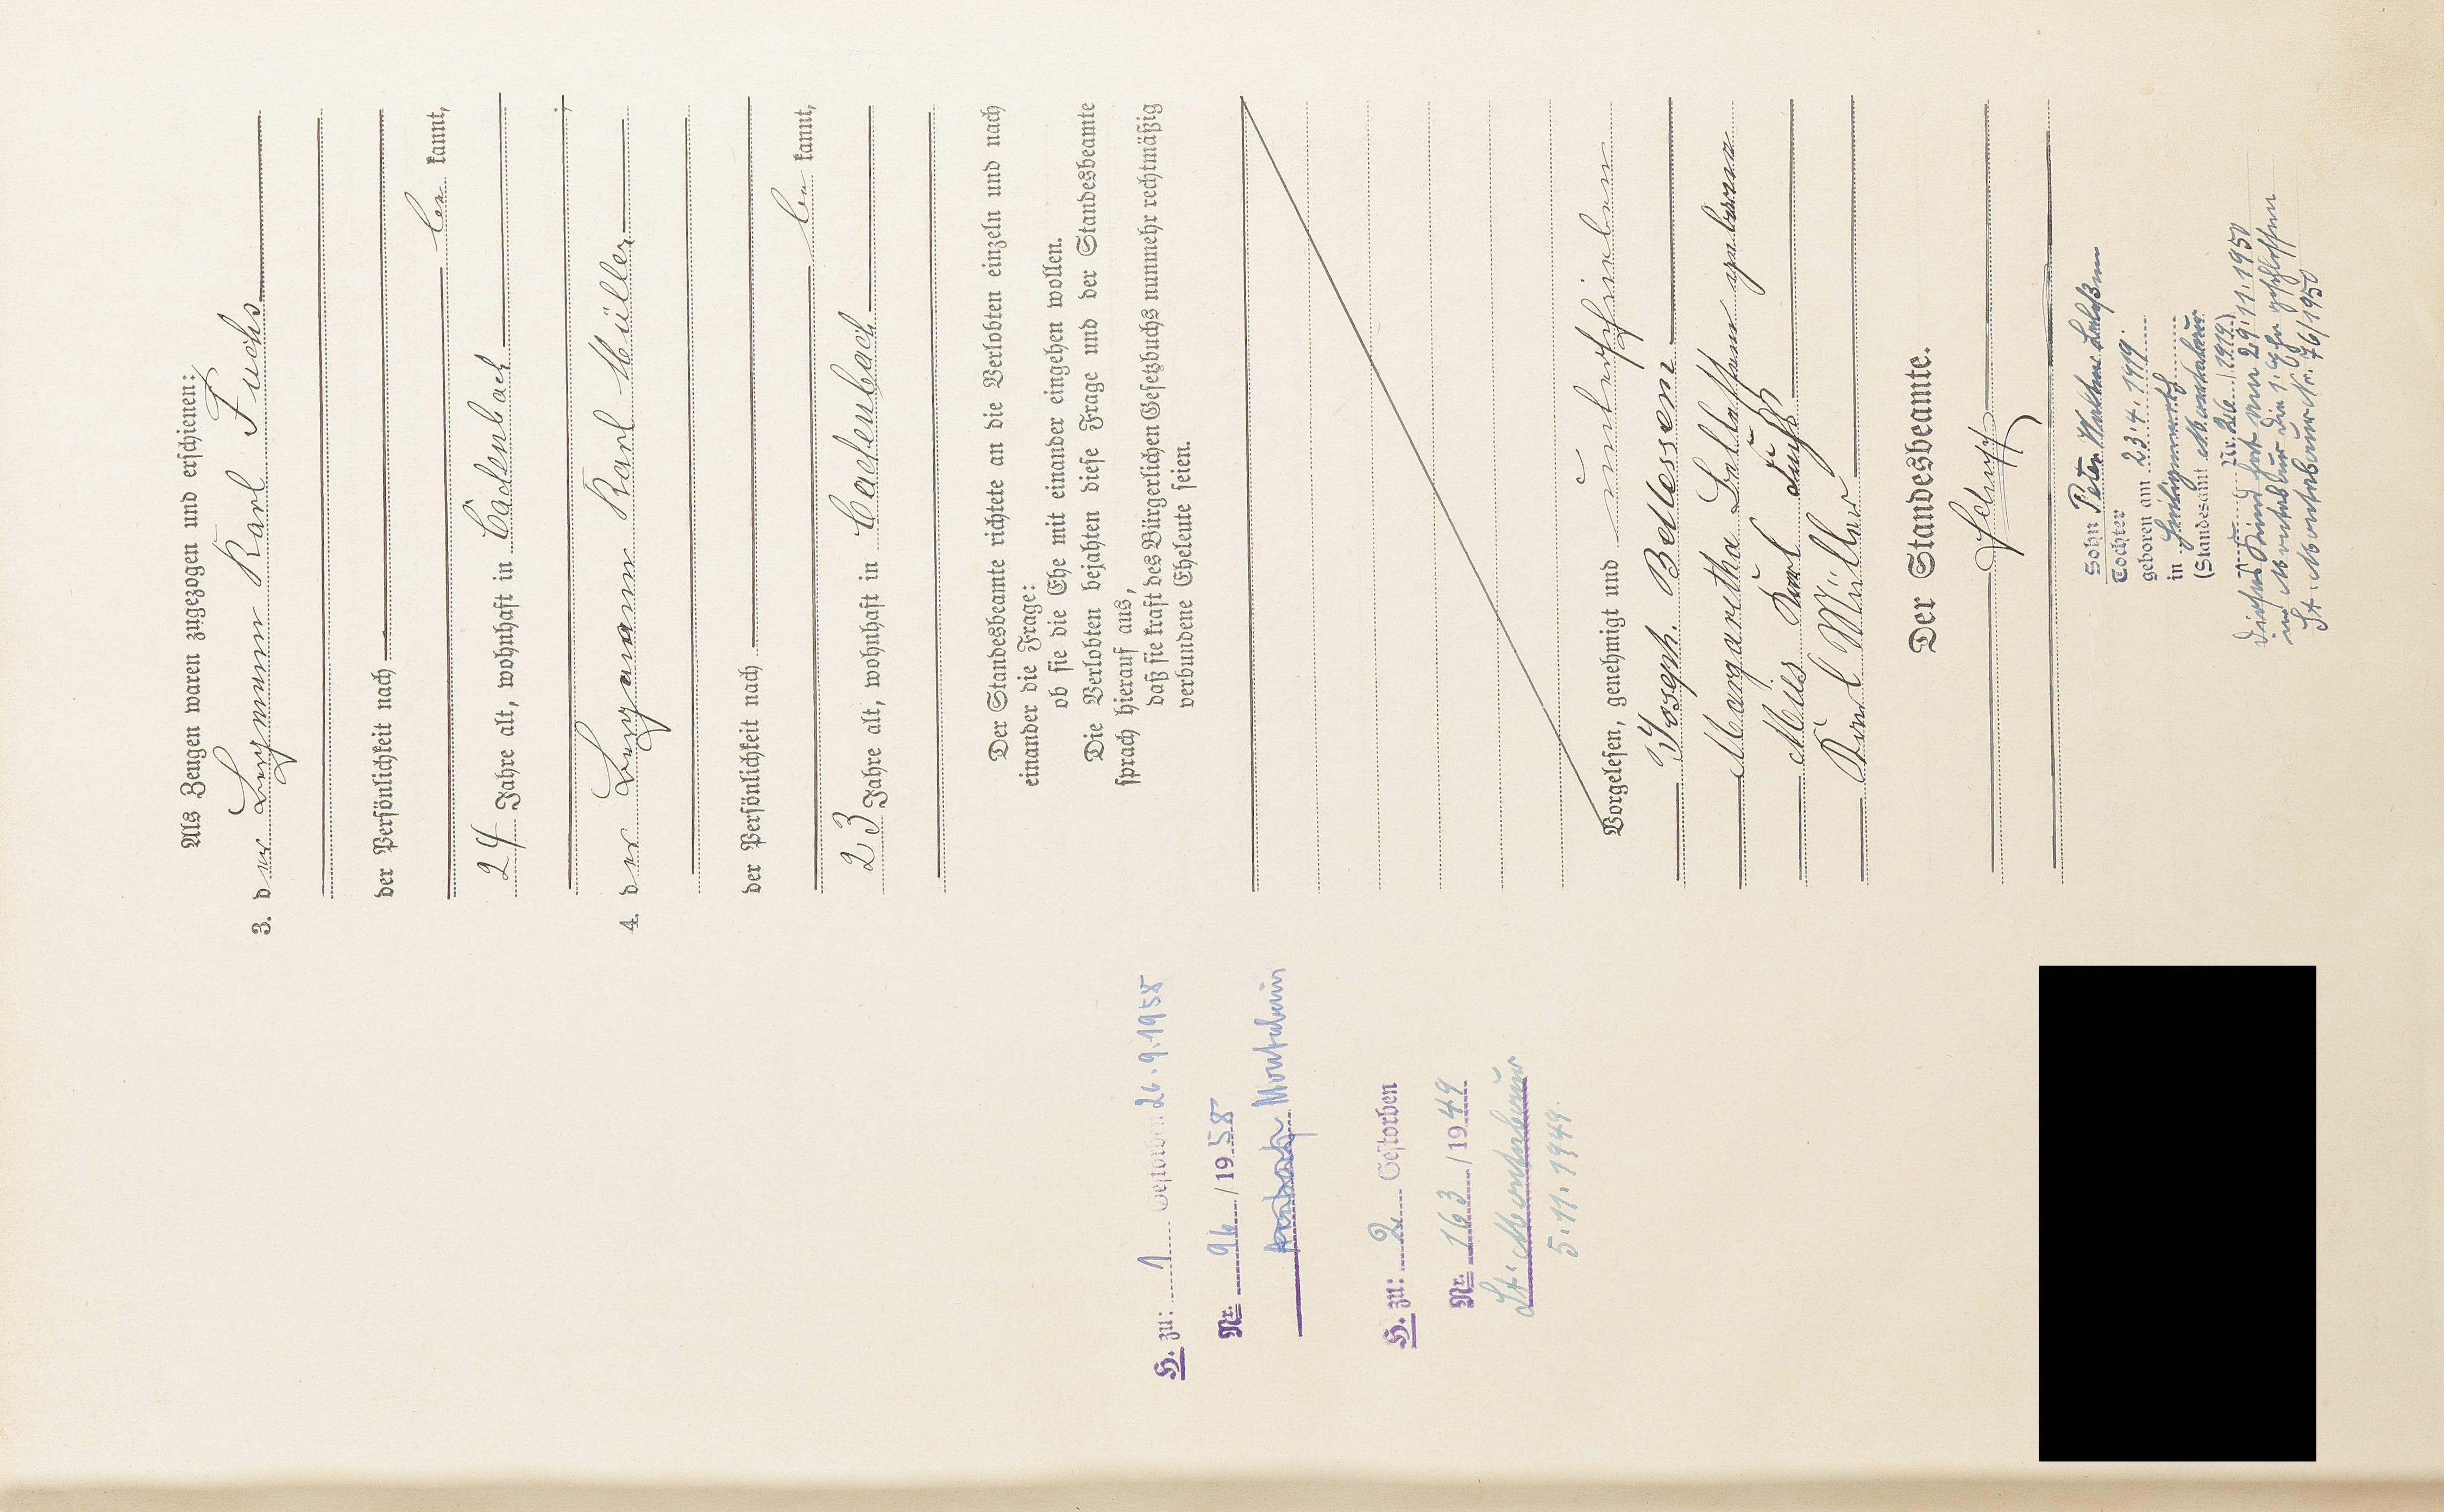 Als Zeugen waren zugezogen und erschienen:
3. der Bergmann Karl Fuchs
der Persönlichkeit nach
be kannt,
24 Jahre alt, wohnhaft in Cadenbach
;
4. der Bergmann Karl Müller
der Persönlichkeit nach
be kannt,
23 Jahre alt, wohnhaft in Cadenbach
Der Standesbeamte richtete an die Verlobten einzeln und nach
einander die Frage:
ob sie die Ehe mit einander eingehen wollen.
Die Verlobten bejahten diese Frage und der Standesbeamte
sprach hierauf aus,
daß sie kraft des Bürgerlichen Gesetzbuchs nunmehr rechtmäßig
verbundene Eheleute seien.
Vorgelesen, genehmigt und unterschrieben
Joseph Bellessem
Margaretha geborene
Karl Fuchs
Karl Müller
Der Standesbeamte.
Schupp
Sohn Peter
Tochter
geboren am 23.4.1919
in
(Standesamt Montabaur
Nr. 26 / 1919)
Dieses Kind hat am 29.11.1950
in Montabaur die 1. Ehe geschlossen
St. Montabaur Nr. 76/1950
H. zu: 1 Gestorben 26.9.1958
Nr. 96 / 1958
Montabaur
H. zu: 2 Gestorben
Nr. 163 / 1949
St. Montabaur
5.11.1949.